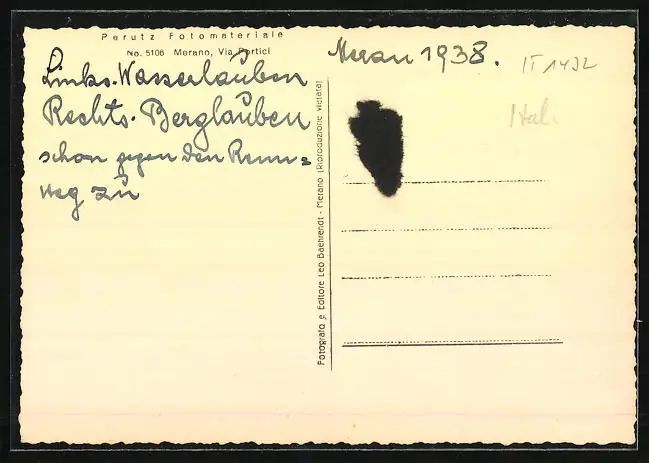 Perutz Fotomateriale
No. 5106 Merano, Via Portici
Links. Wasserlauben
Rechts. Berglauben
schon gegen den Renn=
weg zu
Meran 1938.
IT 1432
Ital.
Fotografo e Editore Leo Baehrendt - Merano (Riproduzione vietata)